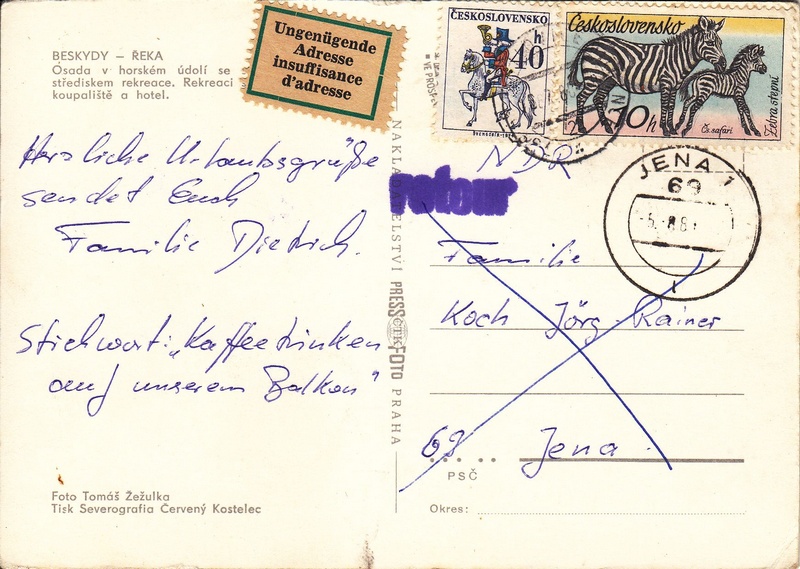 BESKYDY – ŘEKA
Osada v horském údolí se
střediskem rekreace. Rekreací
koupaliště a hotel.
Ungenügende
Adresse
insuffisance
d'adresse
ČESKOSLOVENSKO
40 h
Československo
10 h
Čs. safari
Zebra stepní
NDR
JENA 1
69
retour
Herzliche Urlaubsgrüße
sendet Euch
Familie Dietrich.
Stichwort: „Kaffeetrinken
auf unserem Balkon"
NAKLADATELSTVÍ PRESSFOTO PRAHA
ČTK
Familie
Koch Jörg-Rainer
69 Jena
PSČ
Okres:
Foto Tomáš Žežulka
Tisk Severografia Červený Kostelec